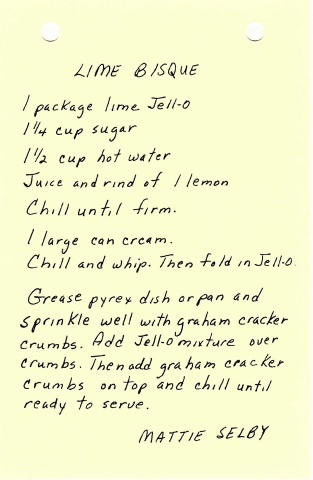 LIME BISQUE
1 package lime Jell-O
1 1/4 cup sugar
1 1/2 cup hot water
Juice and rind of 1 lemon
Chill until firm.
1 large can cream.
Chill and whip. Then fold in Jell-O.
Grease pyrex dish or pan and
sprinkle well with graham cracker
crumbs. Add Jell-O mixture over
crumbs. Then add graham cracker
crumbs on top and chill until
ready to serve.
MATTIE SELBY